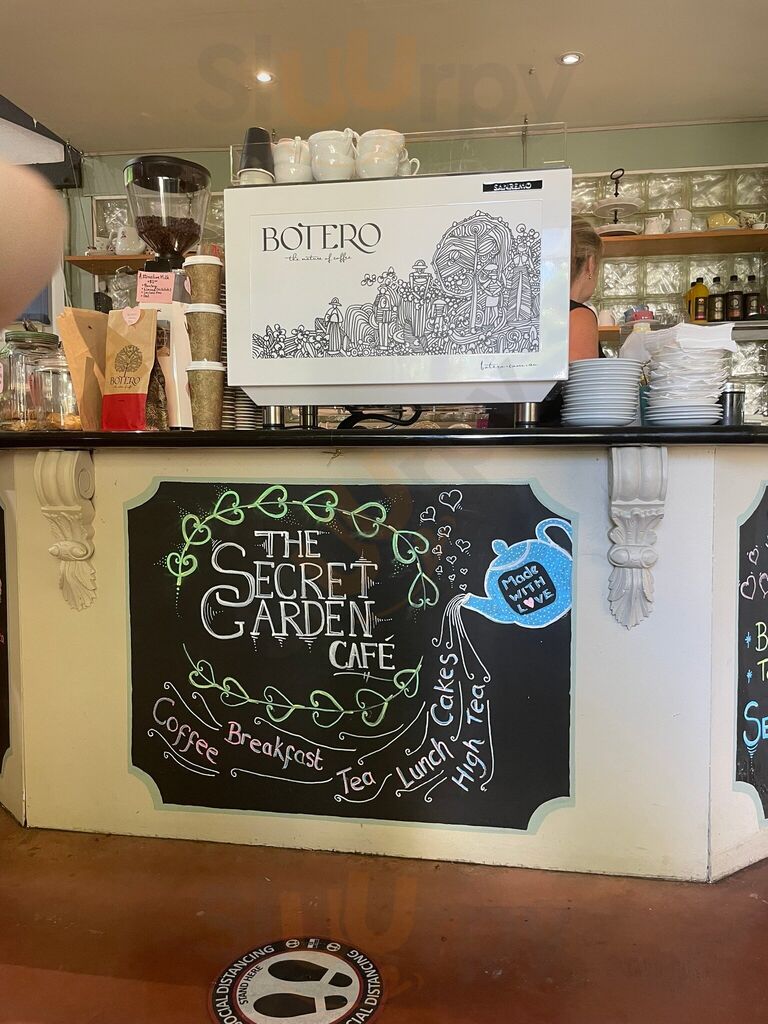 Sluurpy
SANREMO
BOTERO
the nature of coffee
Alternative Milk
BOTERO
THE
SECRET
GARDEN
CAFÉ
Made
WITH
LOVE
Coffee Breakfast Tea Lunch Cakes
High Tea
B
T
SE
SOCIAL DISTANCING
STAND HERE